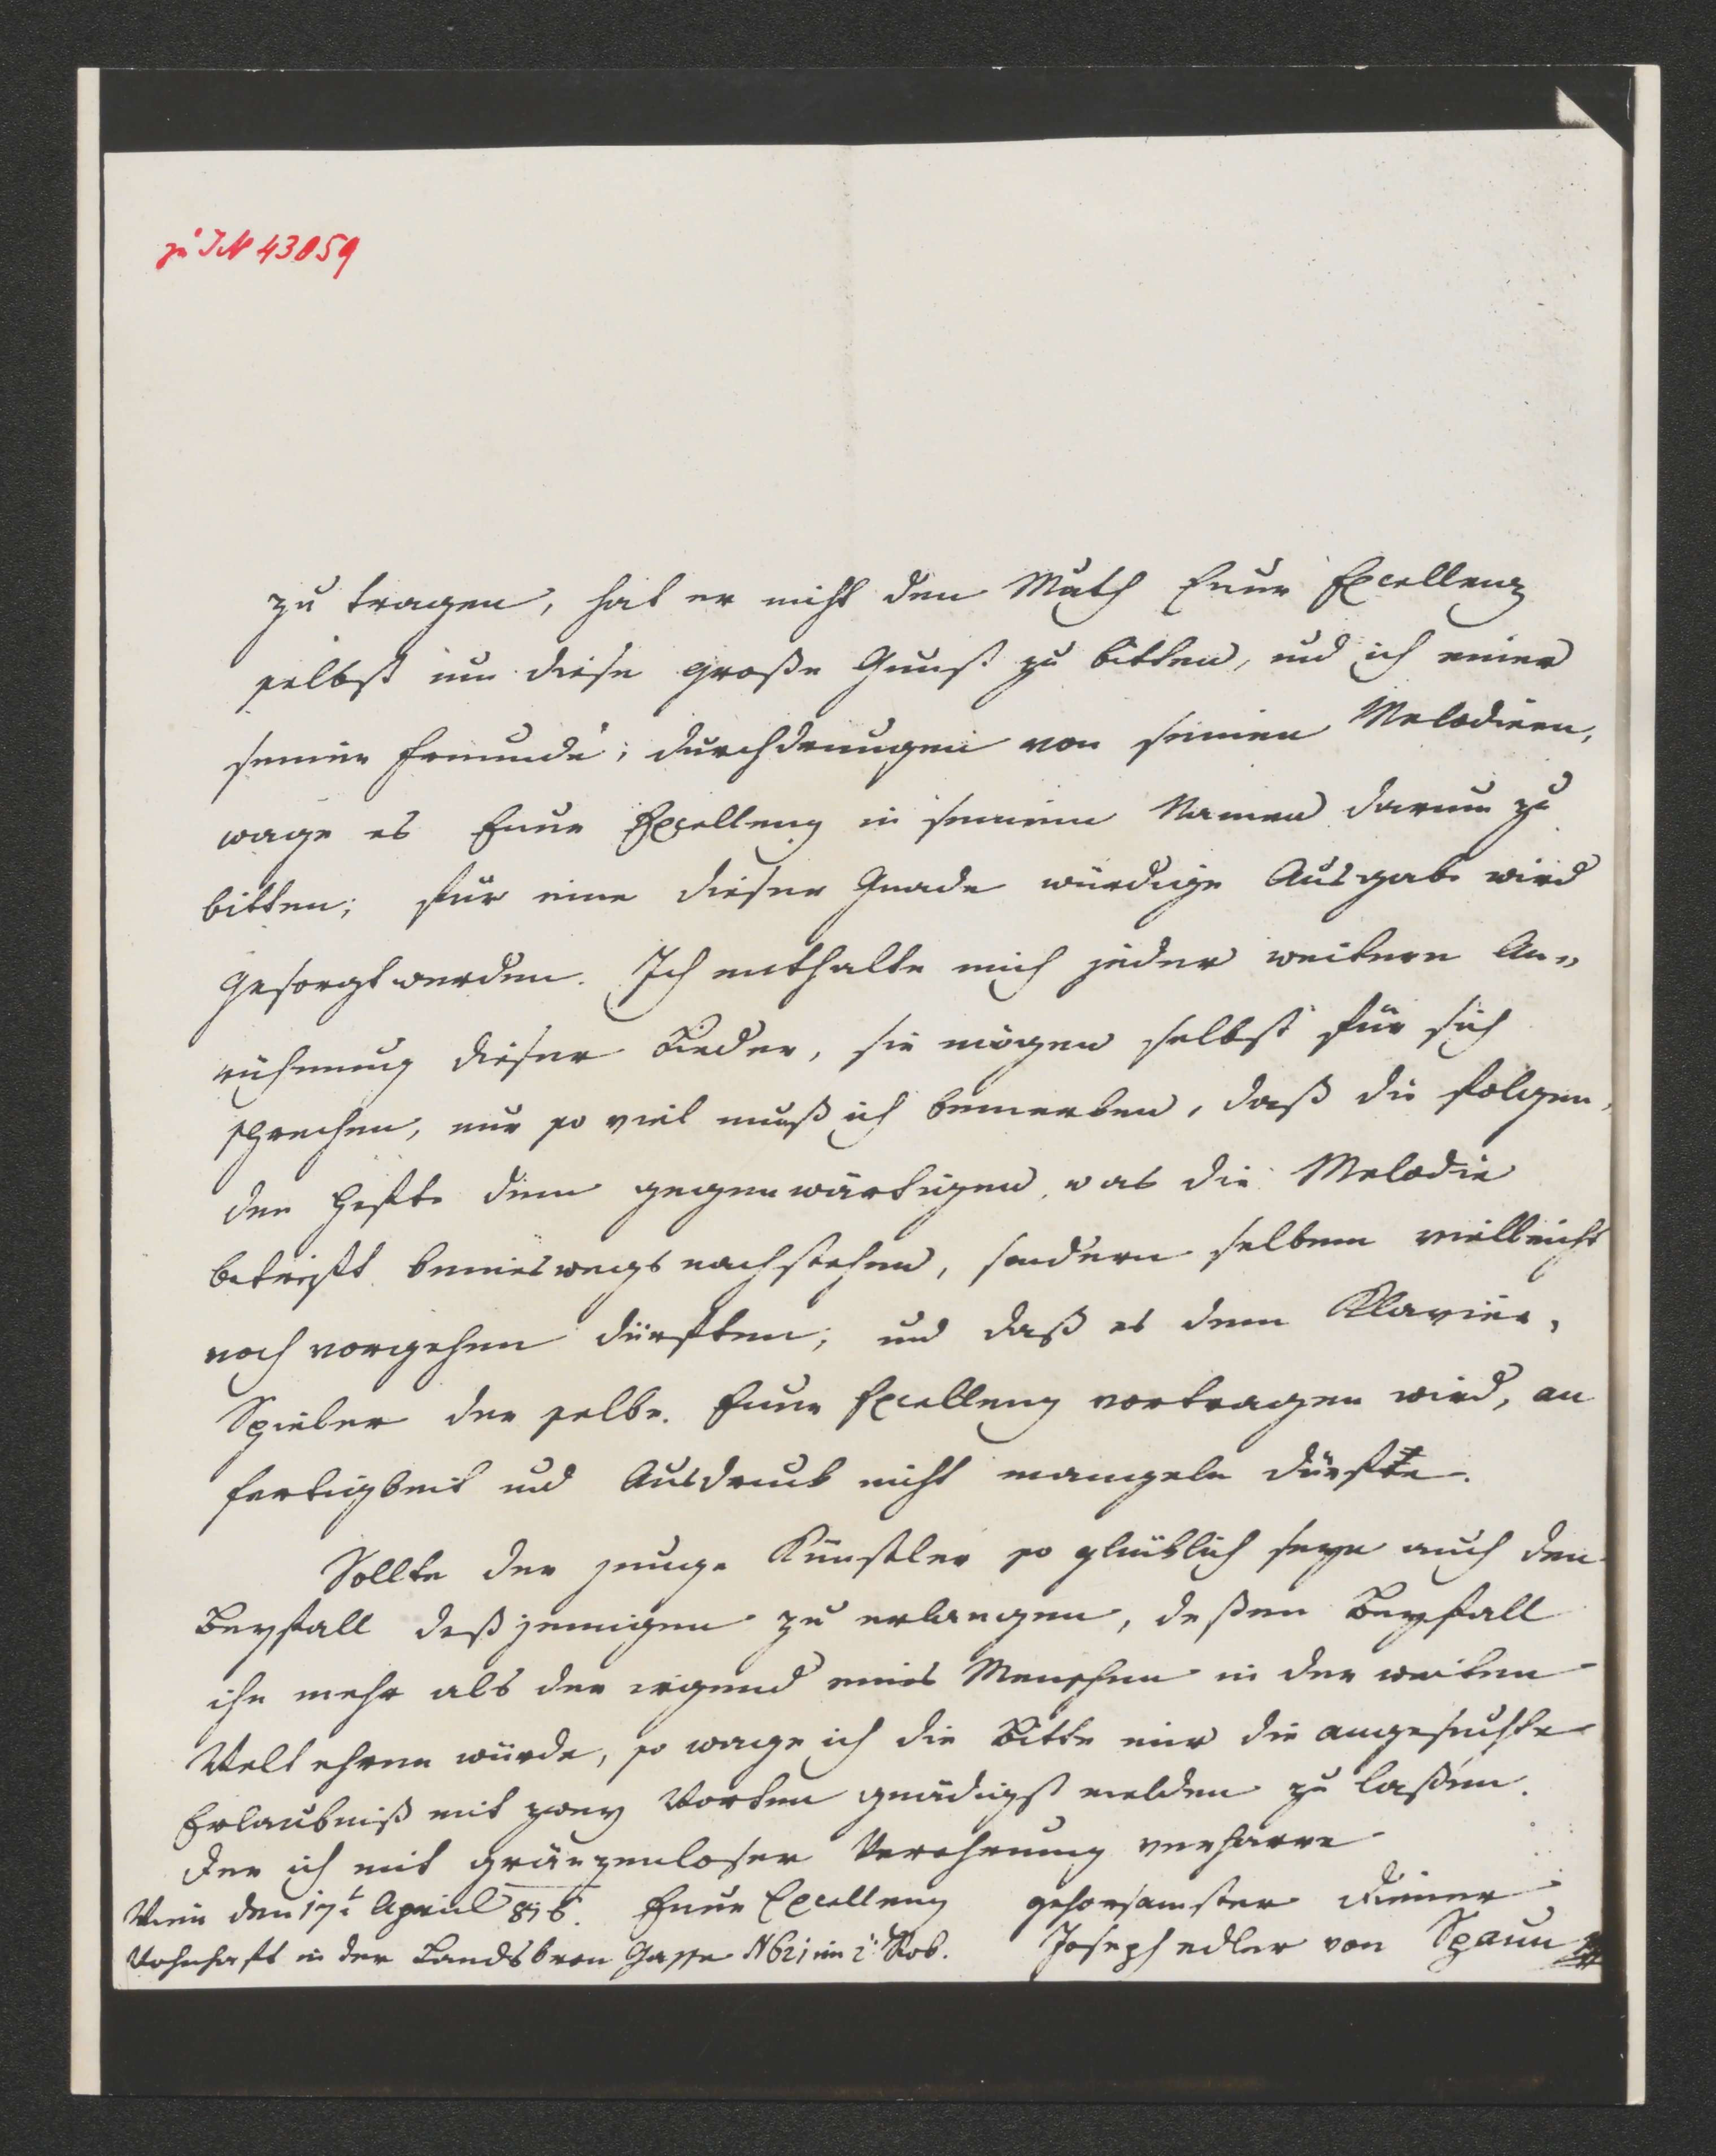 zu JN 43059
zu tragen, hat er nicht den Muth Euer Excellenz
selbst um diese große Gunst zu bitten, und ich einer
seiner Freunde, durchdrungen von seinen Melodieen,
wage es Euer Excellenz in seinem Namen darum zu
bitten; für eine dieser Gnade würdige Ausgabe wird
gesorgt werden. Ich enthalte mich jeder weitern An-
rühmung dieser Lieder, sie mögen selbst für sich
sprechen, nur so viel muß ich bemerken, daß die folgen-
den Hefte dem gegenwärtigen, was die Melodie
betrifft keineswegs nachstehen, sondern selbem vielleicht
noch vorgehen dürften; und daß es dem Klavier-
Spieler der selbe Euer Excellenz vortragen wird, an
Fertigkeit und Ausdruck nicht mangeln dürfte.
Sollte der junge Künstler so glücklich seyn auch den
Beyfall deßjenigen zu erlangen, deßen Beyfall
ihn mehr als der irgend eines Menschen in der weiten
Welt ehren würde, so wage ich die Bitte mir die angesuchte
Erlaubniß mit zwey Worten gnädigst melden zu laßen.
der ich mit gränzenloser Verehrung verharre
Wien den 17t April 816. Euer Excellenz gehorsamster Diener
Wohnhaft in der Landskron Gasse N 621 im 2t Stok. Joseph edler von Spaun